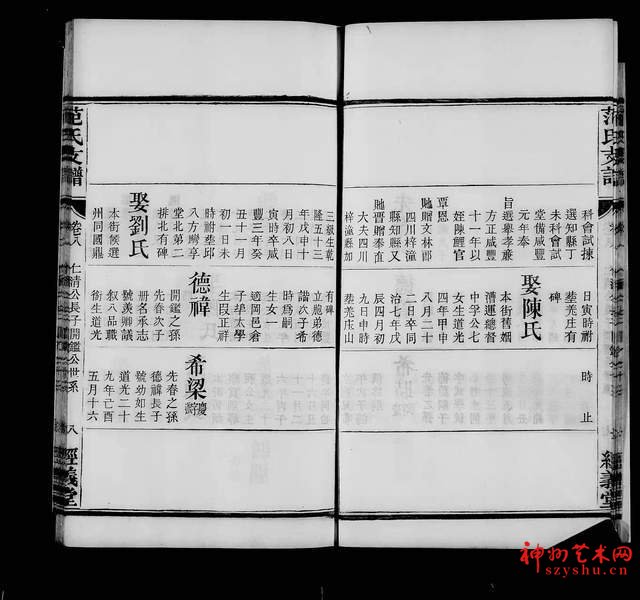 范氏支譜
經義堂
科會試揀
選知縣丁
未科會試
堂備咸豐
元年奉
旨選舉孝廉
方正咸豐
十一年以
姪陳鯉官
覃恩
貤贈文林郎
四川梓潼
縣知縣又
貤晉贈奉直
大夫四川
梓潼縣加
日寅時祔
塟芜庄有
碑
娶陳氏
本街舊姻
漕運總督
中孚公七
女生道光
四年甲申
八月二十
二日卒同
治七年戊
辰四月初
九日申時
塟芜庄山
時
止
三級生乾
隆五十三
年戊申十
月初八日
寅時卒咸
豐三年癸
丑十一月
初一日未
時祔塟邱
八方灣享
堂北第二
排北有碑
娶劉氏
本街候選
州同國鼎
有碑
立胞弟德
諧次子希
時爲嗣
生女一
適岡邑倉
子埠太學
生段正祥
德禕
開鑑之孫
先春次子
冊名承志
號羨卿議
叙八品職
銜生道光
希梁
先春之孫
德禕長子
號幼如生
道光二十
九年己酉
五月十六
范氏支譜
卷八
仁清公長子開鑑公世系
八
經義堂
神州艺术网
szyshu.cn